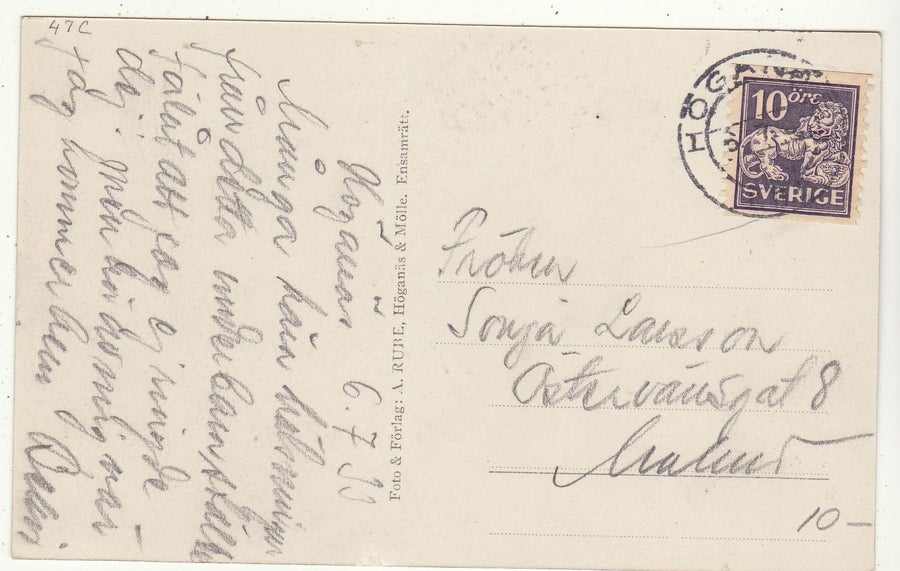 47C
Höganäs 6.7.33
Många kära hälsningar
från detta underbara ställe
förlåt att jag ej ringde
dej. men hör dig när
jag kommer hem
Foto & Förlag: A. RUBE, Höganäs & Mölle. Ensamrätt.
HÖGANÄS
10 öre
SVERIGE
Fröken
Sonja Larsson
Östervärnsgat 8
Malmö
10 —